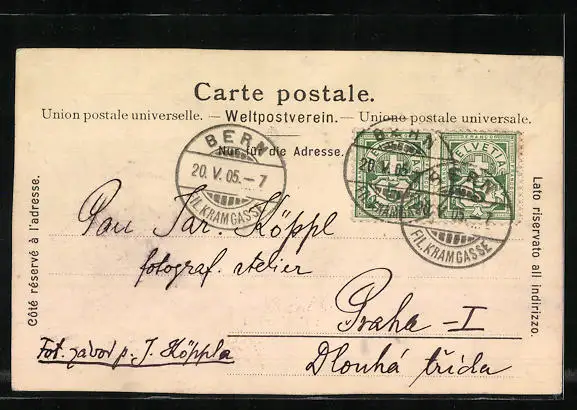 Carte postale.
Union postale universelle. – Weltpostverein. – Unione postale universale.
Nur für die Adresse.
BERN
20. V. 05. – 7
FIL. KRAMGASSE
BERN
20. V. 05.
HELVETIA
BERN
V. 05
FIL. KRAMGASSE
Côté réservé à l'adresse.
Lato riservato all indirizzo.
Pan Jar. Köppl
fotograf. atelier
Praha – I
Dlouhá třída
Fot. závod p. J. Köppla